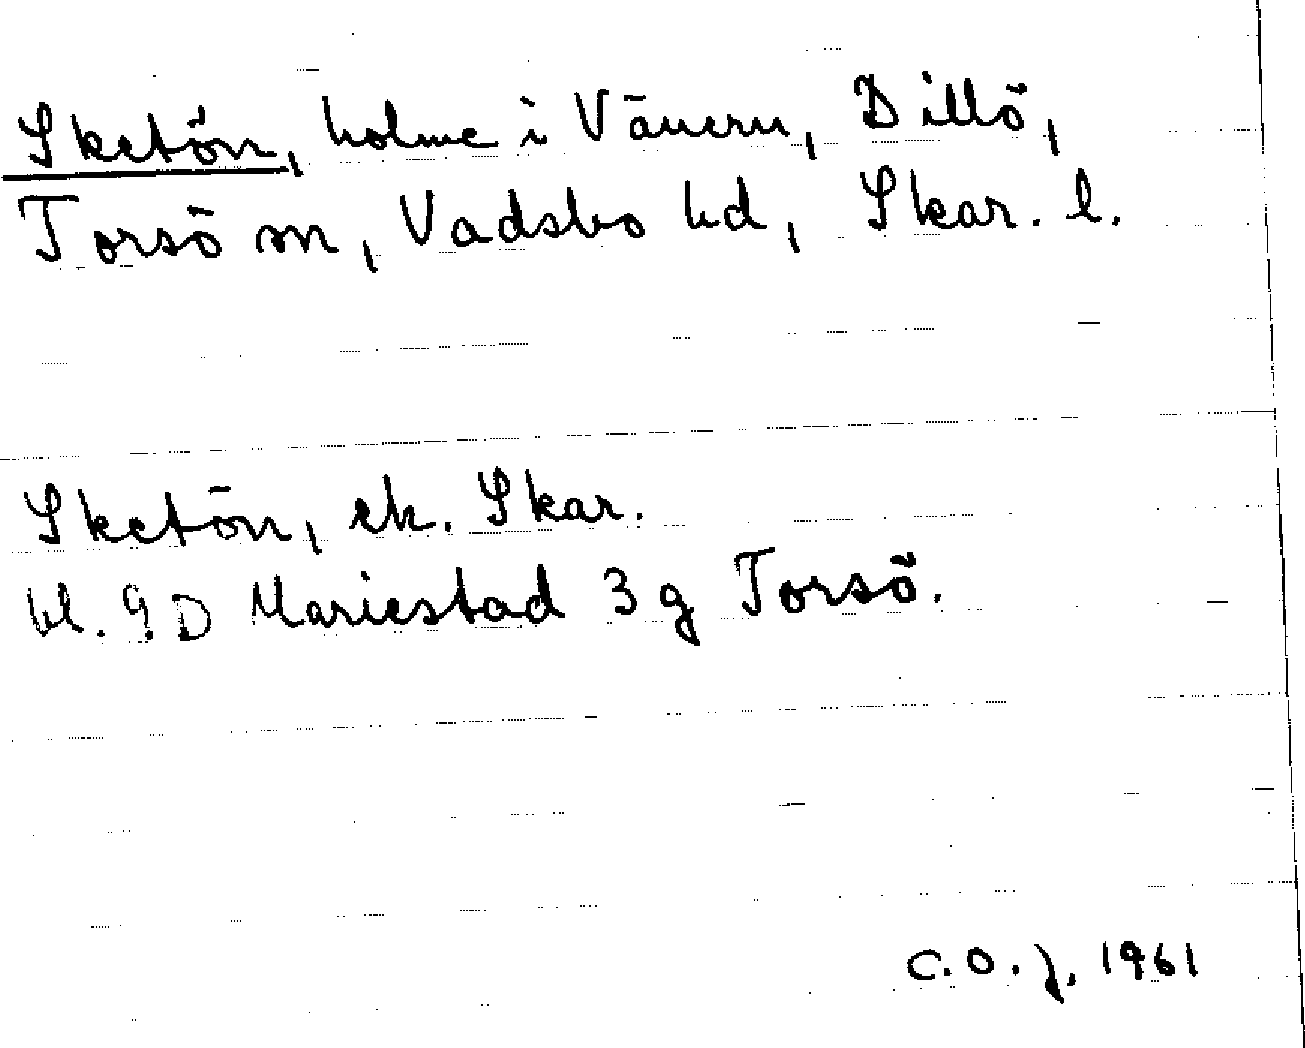 Sketön, holme i Vänern, Dillö,
Torsö sn, Vadsbo hd, Skar. l.
Sketön, ek. Skar.
bl. 9.D Mariestad 3 g Torsö.
C.O.J. 1961